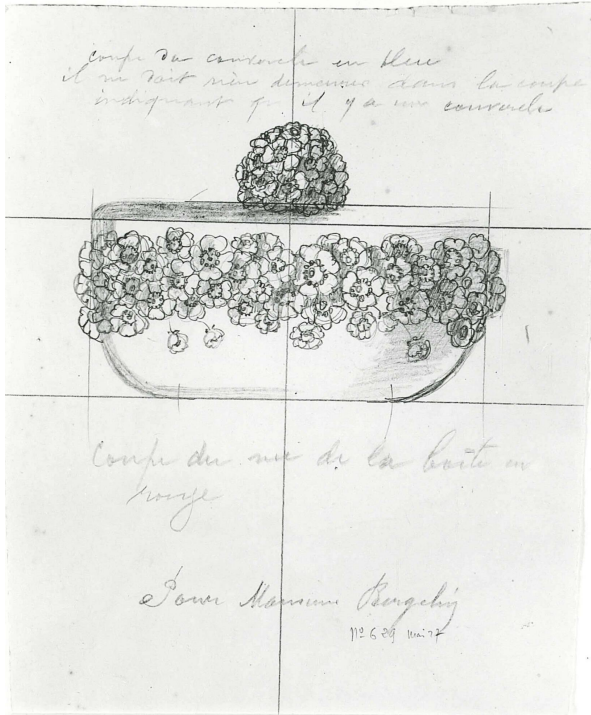 coupe du couvercle en bleu
il ne doit rien demeurer dans la coupe
indiquant qu'il y a un couvercle
Coupe du nu de la boîte en
rouge
Pour Monsieur
No 629 mai 27